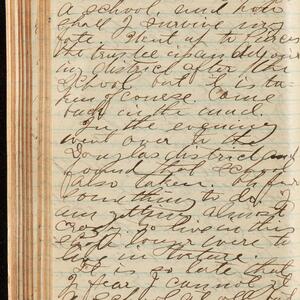 a school, and how
shall I survive my
fate. Went up to
the trustee in an adjoin
ing district after the
school but it is ta-
ken of course. Came
back in the mud.
In the evening
went over to the
Douglas district and
found that school
also taken. Oh for
something to do. I
am getting almost
crazy. To live in this
state longer were to
live in torture.
It is so late that
I fear I cannot get
a school at all